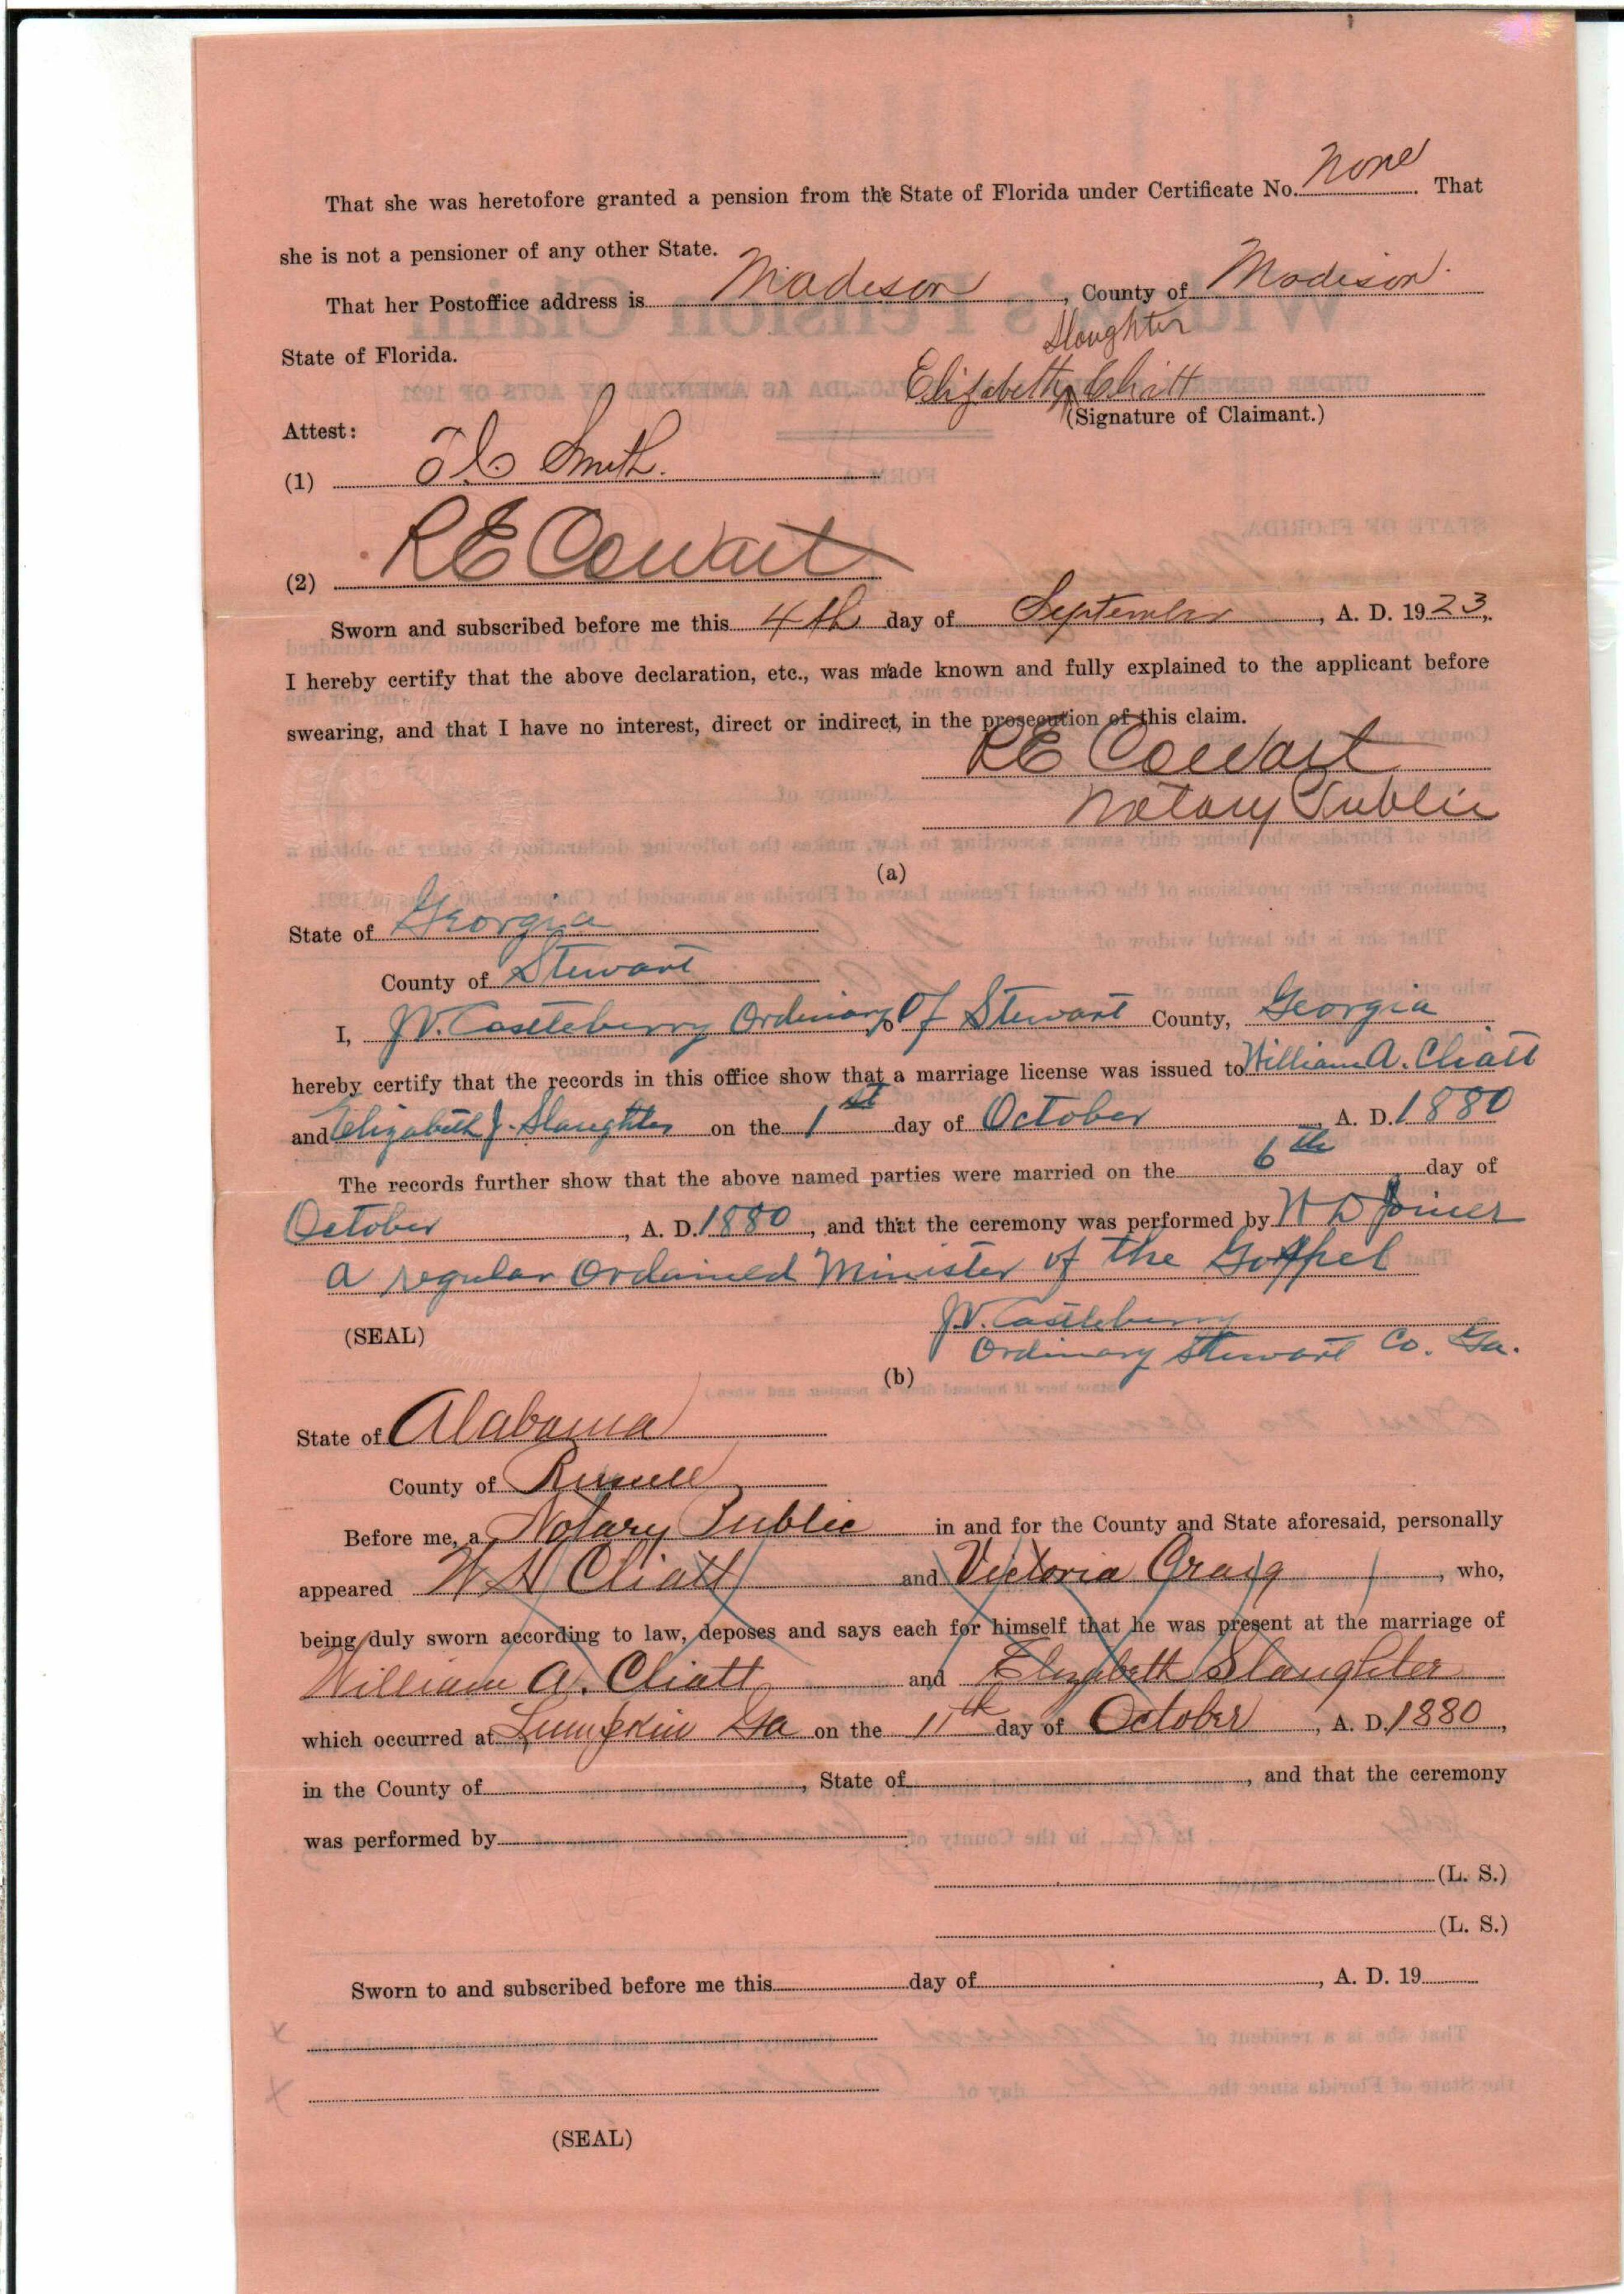 That she was heretofore granted a pension from the State of Florida under Certificate No. None. That
she is not a pensioner of any other State.
That her Postoffice address is Madison, County of Madison.
State of Florida.
Slaughter
Elizabeth ^ Cliatt
(Signature of Claimant.)
Attest:
(1) Smith.
(2) R E Cowart
Sworn and subscribed before me this 4th day of September, A. D. 1923,
I hereby certify that the above declaration, etc., was made known and fully explained to the applicant before
swearing, and that I have no interest, direct or indirect, in the prosecution of this claim.
R E Cowart
Notary Public
(a)
State of Georgia
County of Stewart
I, J.V. Castleberry Ordinary Of Stewart County, Georgia
hereby certify that the records in this office show that a marriage license was issued to William A. Cliatt
and Elizabeth J. Slaughter on the 1st day of October, A. D. 1880
The records further show that the above named parties were married on the 6th day of
October, A. D. 1880, and that the ceremony was performed by W D Joiner
a regular Ordained Minister of the Gospel
(SEAL)
J.V. Castleberry
Ordinary Stewart Co. Ga.
(b)
State of Alabama
County of Russell
Before me, a Notary Public in and for the County and State aforesaid, personally
appeared W H Cliatt and Victoria Craig, who,
being duly sworn according to law, deposes and says each for himself that he was present at the marriage of
William A. Cliatt and Elizabeth Slaughter
which occurred at Lumpkin Ga on the 11th day of October, A. D. 1880,
in the County of, State of, and that the ceremony
was performed by
(L. S.)
(L. S.)
Sworn to and subscribed before me this day of, A. D. 19
x
x
(SEAL)